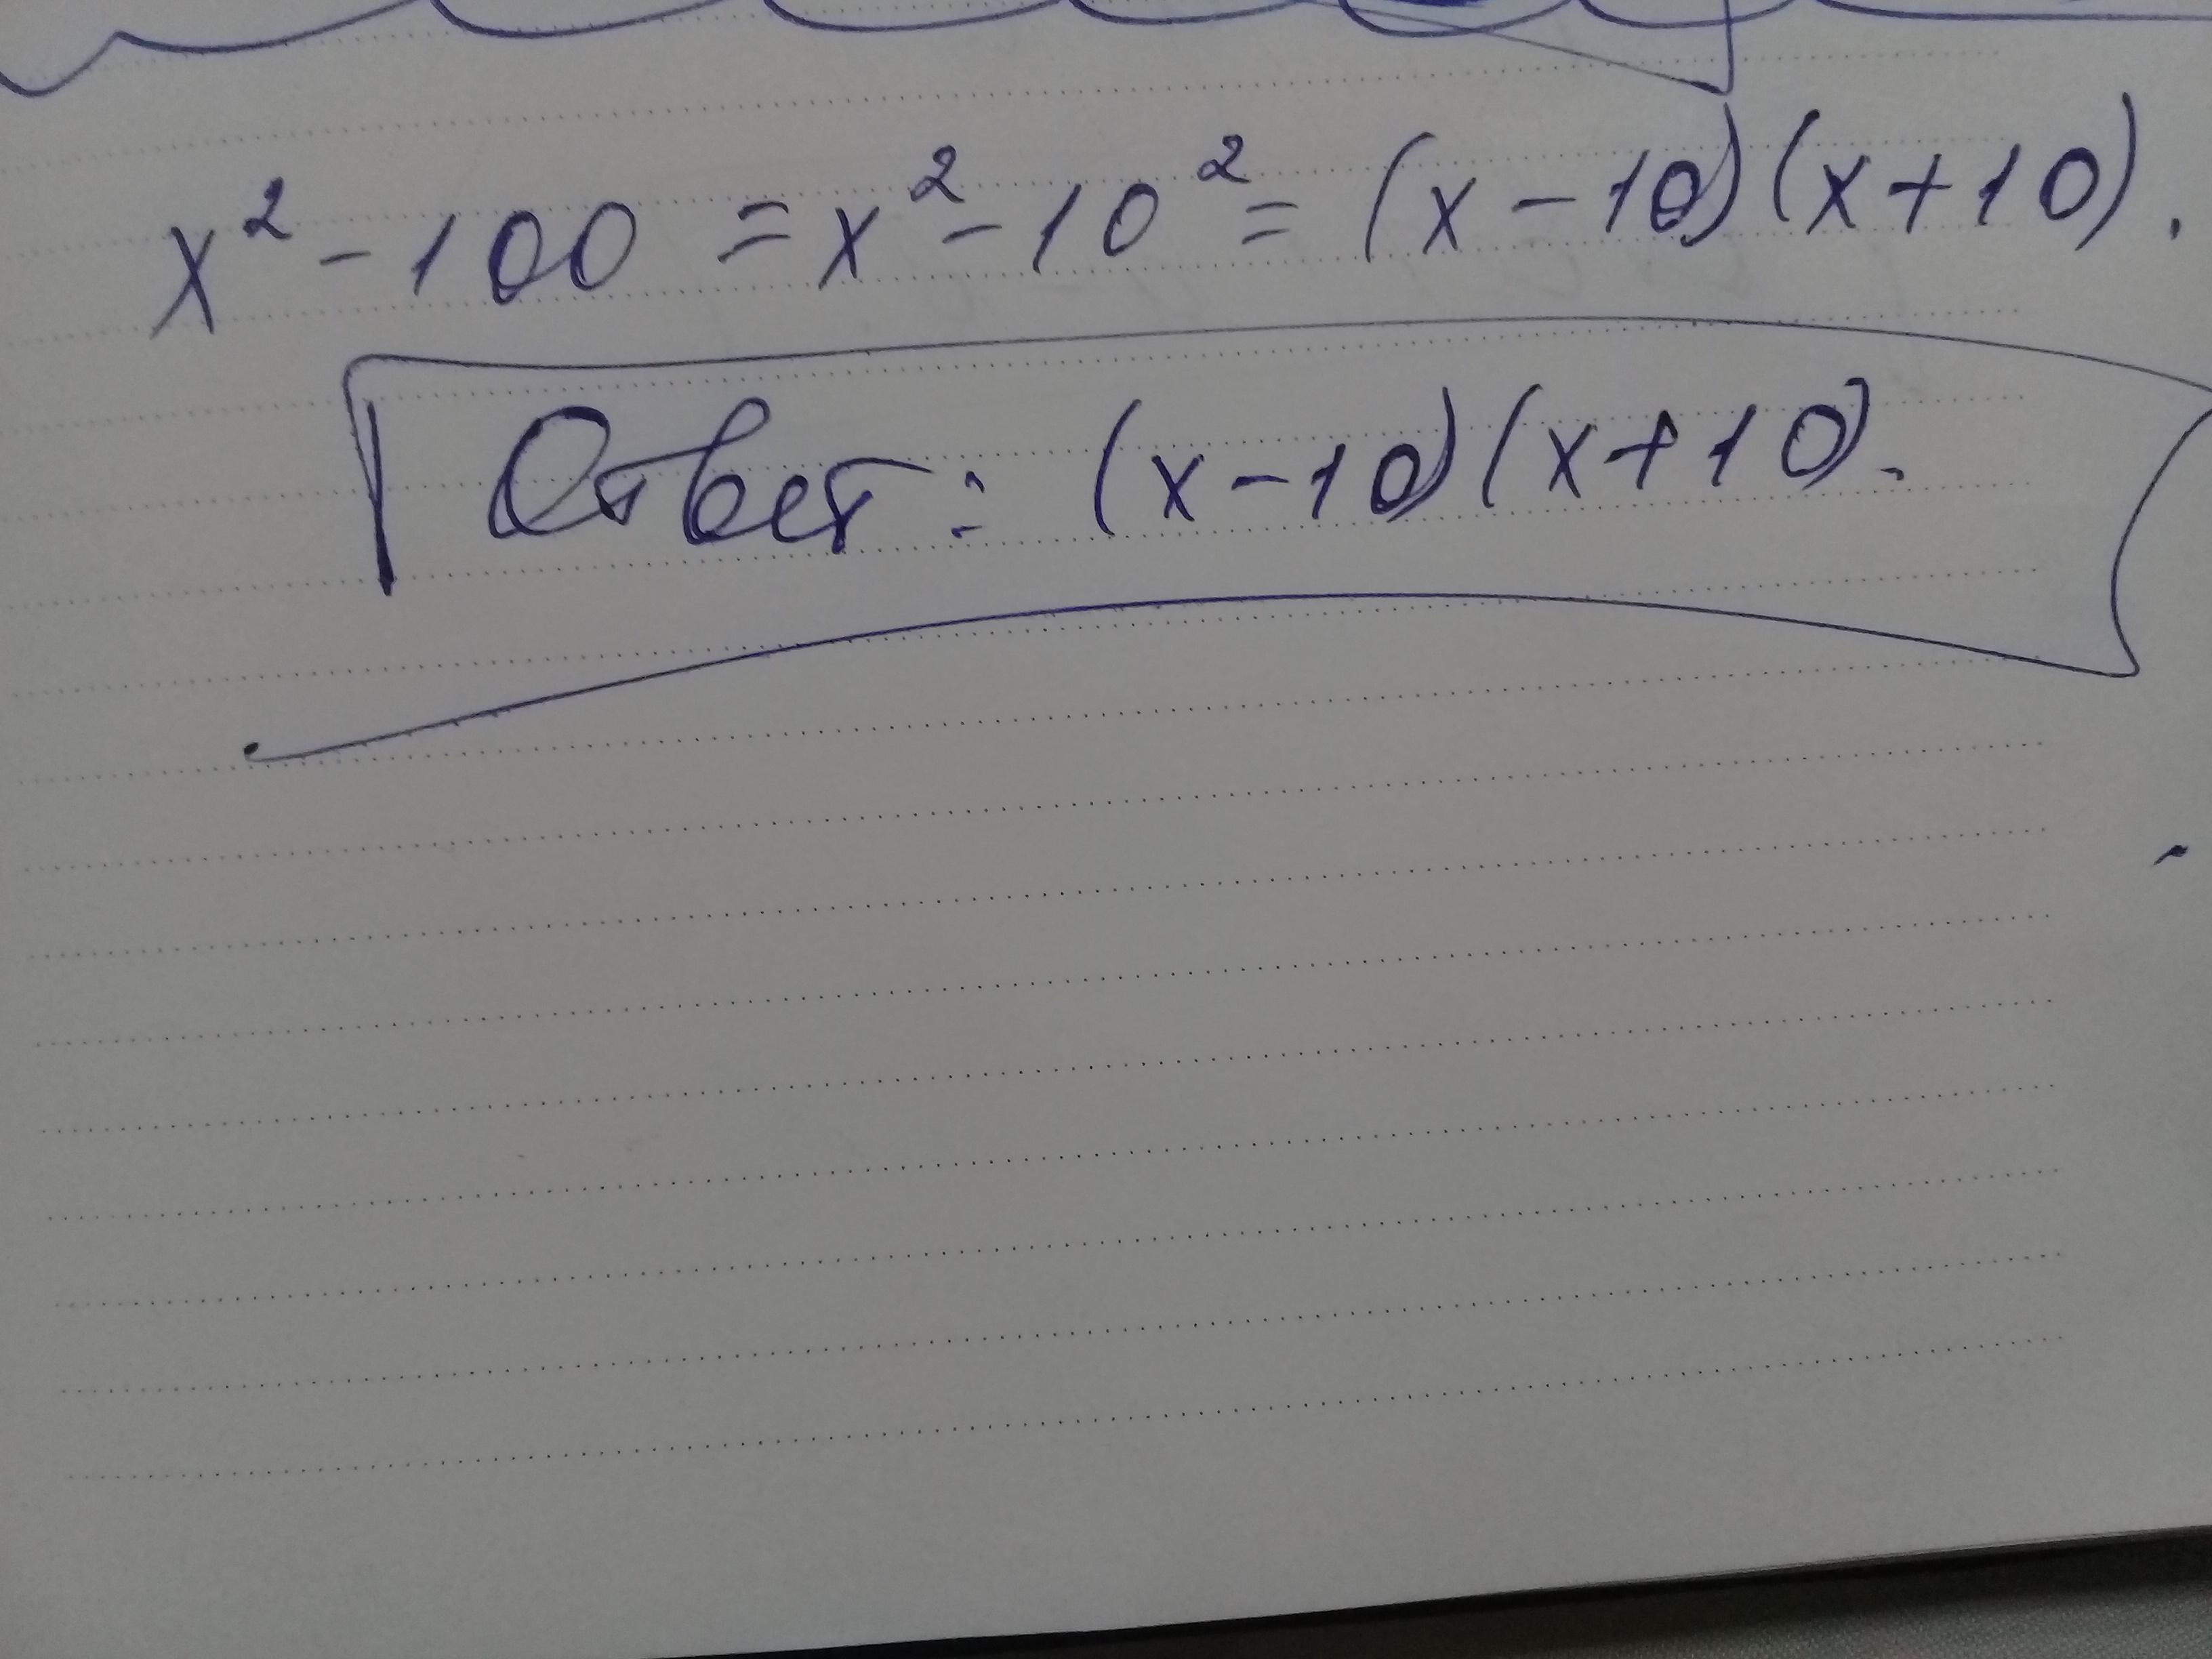 x² - 100 = x² - 10² = (x - 10)(x + 10).
Ответ: (x - 10)(x + 10).